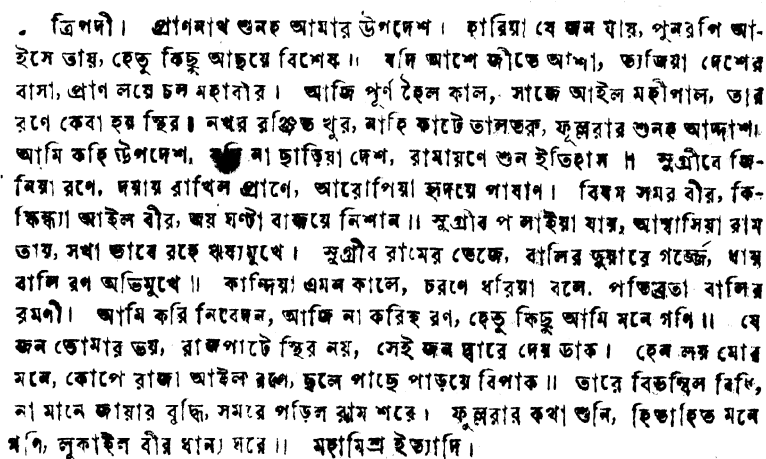 ত্রিপদী। প্রাণনাথ শুনহ আমার উপদেশ। হারিয়া যে জন যায়, পুনরপি আ-
ইসে তায়, হেতু কিছু আছয়ে বিশেষ॥ যদি আশে জীতে আশা, ত্যজিয়া দেশের
বাসা, প্রাণ লয়ে চল মহাবীর। আজি পূর্ণ হৈল কাল, সাজে আইল মহীপাল, তার
রণে কেবা হয় স্থির। নখর রঞ্জিত খুর, নাহি কাটে তালতরু, ফুল্লরার শুনহ আদ্দাশ।
আমি কহি উপদেশ, না ছাড়িয়া দেশ, রামায়ণে শুন ইতিহাস॥ সুগ্রীবে জি-
নিয়া রণে, দয়ায় রাখিল প্রাণে, আরোপিয়া হৃদয়ে পাষাণ। বিষম সমর বীর, কি-
ষ্কিন্ধ্যা আইল বীর, জয় ঘণ্টা বাজয়ে নিশান॥ সুগ্রীব পলাইয়া যায়, আশ্বাসিয়া রাম
তায়, সখা ভাবে রহে ঋষ্যমুখে। সুগ্রীব রামের তেজে, বালির দুয়ারে গর্জ্জে, ধায়
বালি রণ অভিমুখে॥ কান্দিয়া এমন কালে, চরণে ধরিয়া বলে, পতিব্রতা বালির
রমণী। আমি করি নিবেদন, আজি না করিহ রণ, হেতু কিছু আমি মনে গণি॥ যে
জন তোমার ভয়, রাজপাটে স্থির নয়, সেই জন দ্বারে দেয় ডাক। হেন লয় মোর
মনে, কোপে রাজা আইল রণে, ছলে পাছে পাড়য়ে বিপাক॥ তারে বিড়ম্বিল বিধি,
না মানে জায়ার বুদ্ধি, সমরে পড়িল রাম শরে। ফুল্লরার কথা শুনি, হিতাহিত মনে
গণি, লুকাইল বীর ধান্য ঘরে॥ মহামিশ্র ইত্যাদি।